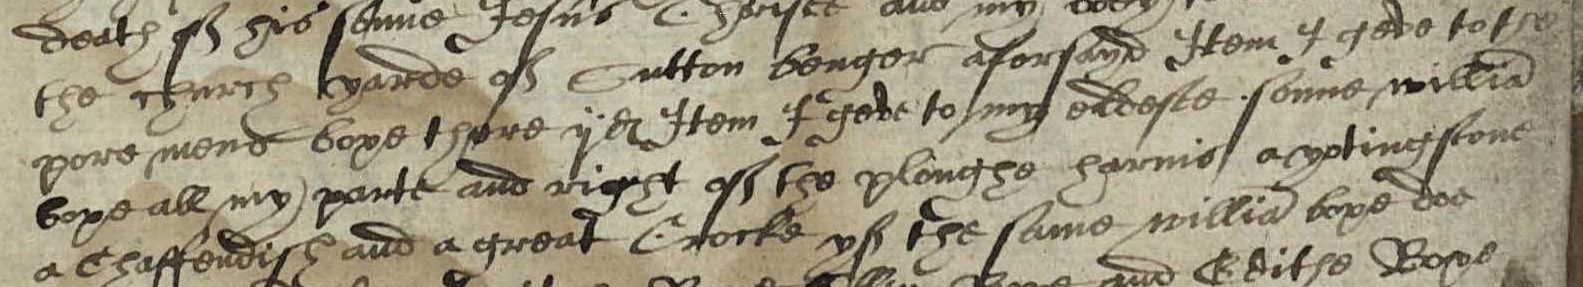 death of his sonne Jesus Christe and my body
the church yarde of Sutton benger aforsayd Item I geve to the
pore mens boxe there ijd Item I geve to my eldeste sonne willia
boxe all my parte and right of the ploughe harnis a yotingstone
a Chaffendish and a great Crocke yf the same willia boxe doe
and Edithe Boxe